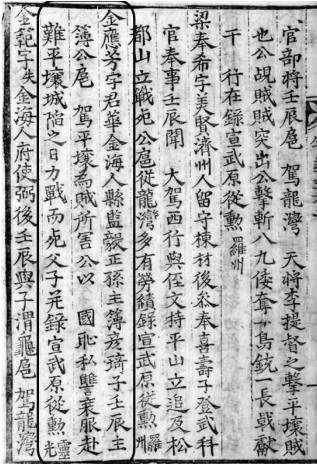 官部將壬辰扈 駕龍灣 天將李提督之擊平壤賊
也公覘賊賊突出公擊斬八九倭奪鳥銃一長戟獻
于 行在錄宣武原從勳羅州
梁奉希字美賢濟州人留守棟材後參奉喜壽子登武科
官奉事壬辰聞 大駕西行與侄文持平山立追及松
都山立戰死公扈從龍灣多有勞績錄宣武原從勳羅州
金應芳字君華金海人縣監毅正孫主簿彥琦子壬辰主
簿公扈 駕平壤爲賊所害公以 國恥私讐衰服赴
難平壤城陷之日力戰而死父子並錄宣武原從勳靈光
金範字 金海人府使弼後壬辰與子渭龜扈 駕龍灣